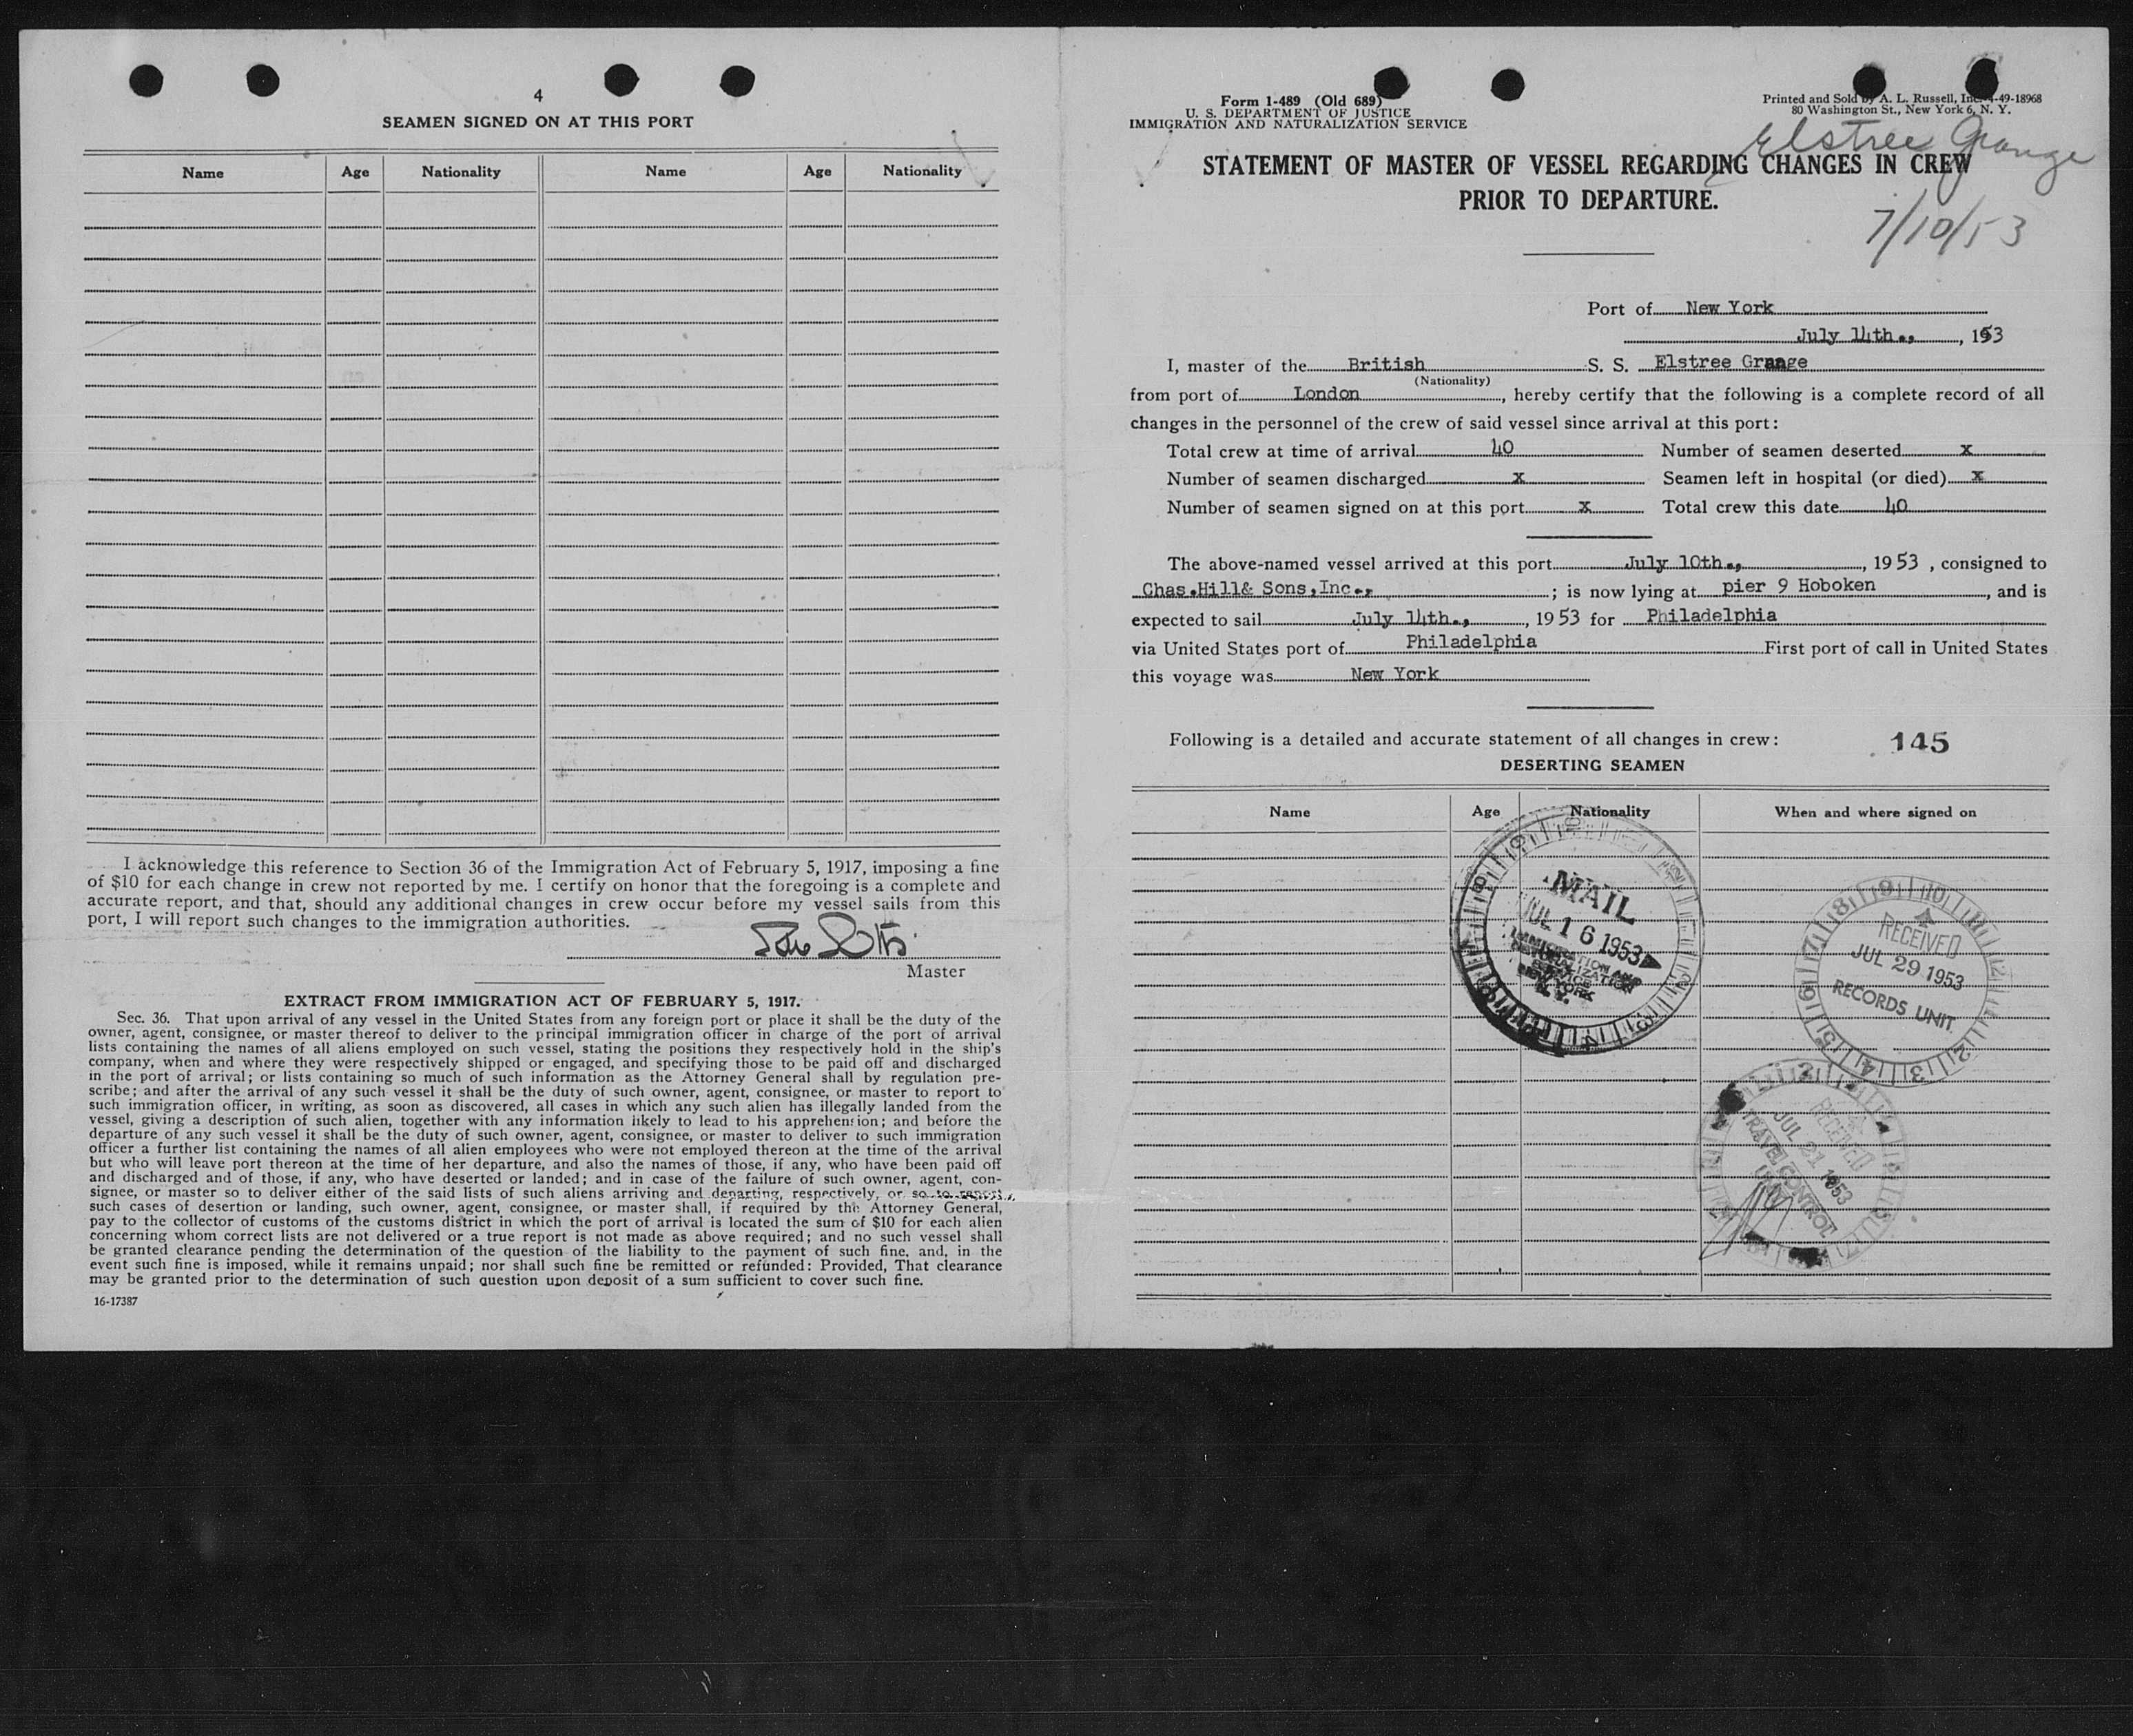 4
SEAMEN SIGNED ON AT THIS PORT
Name Age Nationality Name Age Nationality
I acknowledge this reference to Section 36 of the Immigration Act of February 5, 1917, imposing a fine
of $10 for each change in crew not reported by me. I certify on honor that the foregoing is a complete and
accurate report, and that, should any additional changes in crew occur before my vessel sails from this
port, I will report such changes to the immigration authorities.
Master
EXTRACT FROM IMMIGRATION ACT OF FEBRUARY 5, 1917.
Sec. 36. That upon arrival of any vessel in the United States from any foreign port or place it shall be the duty of the
owner, agent, consignee, or master thereof to deliver to the principal immigration officer in charge of the port of arrival
lists containing the names of all aliens employed on such vessel, stating the positions they respectively hold in the ship's
company, when and where they were respectively shipped or engaged, and specifying those to be paid off and discharged
in the port of arrival; or lists containing so much of such information as the Attorney General shall by regulation pre-
scribe; and after the arrival of any such vessel it shall be the duty of such owner, agent, consignee, or master to report to
such immigration officer, in writing, as soon as discovered, all cases in which any such alien has illegally landed from the
vessel, giving a description of such alien, together with any information likely to lead to his apprehension; and before the
departure of any such vessel it shall be the duty of such owner, agent, consignee, or master to deliver to such immigration
officer a further list containing the names of all alien employees who were not employed thereon at the time of the arrival
but who will leave port thereon at the time of her departure, and also the names of those, if any, who have been paid off
and discharged and of those, if any, who have deserted or landed; and in case of the failure of such owner, agent, con-
signee, or master so to deliver either of the said lists of such aliens arriving and departing, respectively, or so to report
such cases of desertion or landing, such owner, agent, consignee, or master shall, if required by the Attorney General,
pay to the collector of customs of the customs district in which the port of arrival is located the sum of $10 for each alien
concerning whom correct lists are not delivered or a true report is not made as above required; and no such vessel shall
be granted clearance pending the determination of the question of the liability to the payment of such fine, and, in the
event such fine is imposed, while it remains unpaid; nor shall such fine be remitted or refunded: Provided, That clearance
may be granted prior to the determination of such question upon deposit of a sum sufficient to cover such fine.
16-17387
Form 1-489 (Old 689)
U. S. DEPARTMENT OF JUSTICE
IMMIGRATION AND NATURALIZATION SERVICE
Printed and Sold by A. L. Russell, Inc. 4-49-18968
80 Washington St., New York 6, N. Y.
Elstree Grange
STATEMENT OF MASTER OF VESSEL REGARDING CHANGES IN CREW
PRIOR TO DEPARTURE.
7/10/53
Port of New York
July 14th., , 1953
I, master of the British S. S. Elstree Grange
(Nationality)
from port of London , hereby certify that the following is a complete record of all
changes in the personnel of the crew of said vessel since arrival at this port:
Total crew at time of arrival 40 Number of seamen deserted x
Number of seamen discharged x Seamen left in hospital (or died) x
Number of seamen signed on at this port x Total crew this date 40
The above-named vessel arrived at this port July 10th., , 1953 , consigned to
Chas.Hill& Sons,Inc., ; is now lying at pier 9 Hoboken , and is
expected to sail July 14th., , 1953 for Philadelphia
via United States port of Philadelphia First port of call in United States
this voyage was New York
Following is a detailed and accurate statement of all changes in crew: 145
DESERTING SEAMEN
Name Age Nationality When and where signed on
MAIL
JUL 16 1953
IMMIGRATION AND
NATURALIZATION
SERVICE
NEW YORK
N. Y.
RECEIVED
JUL 29 1953
RECORDS UNIT
RECEIVED
JUL 21 1953
TRAVEL CONTROL
UNIT